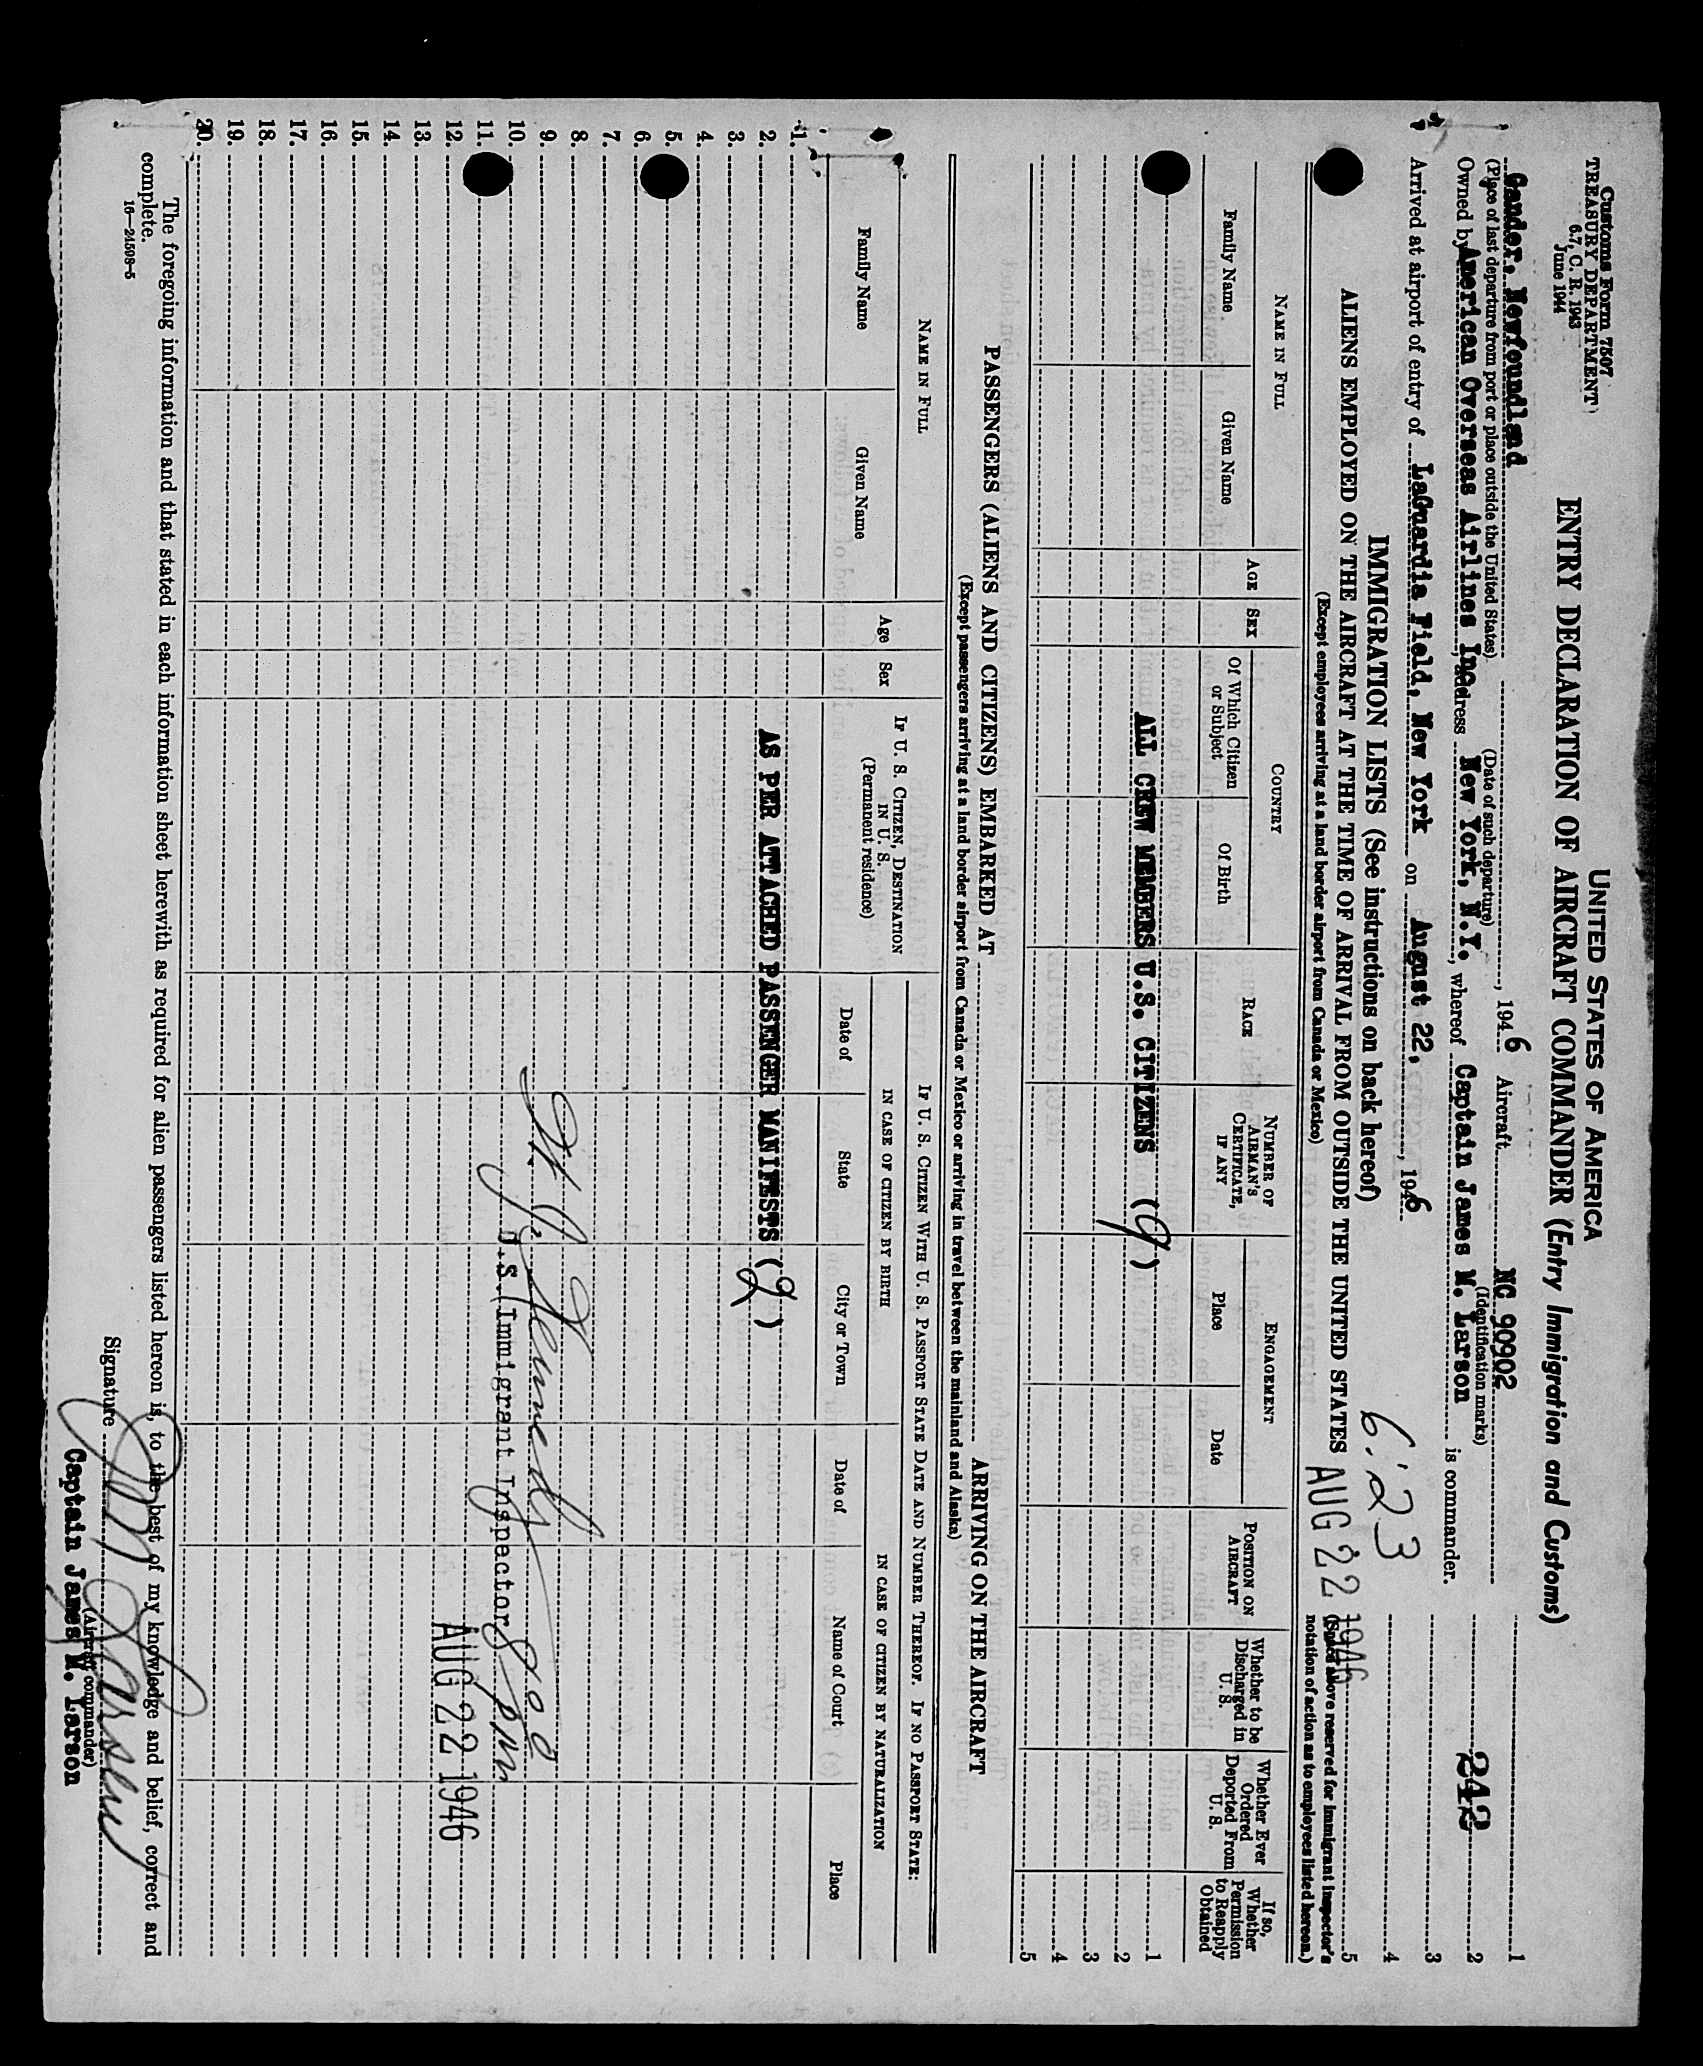 Customs Form 7507
TREASURY DEPARTMENT
6.7, C. R. 1943
June 1944
UNITED STATES OF AMERICA
ENTRY DECLARATION OF AIRCRAFT COMMANDER (Entry Immigration and Customs)
Gander, Newfoundland , 1946 Aircraft NC 90902
(Place of last departure from port or place outside the United States) (Date of such departure) (Identification marks)
Owned by American Overseas Airlines Inc., Address New York, N.Y., whereof Captain James M. Larson is commander.
Arrived at airport of entry of LaGuardia Field, New York on August 22, , 1946
6:23
AUG 22 1946
1
2 242
3
4
5
(Space above reserved for immigrant inspector's
notation of action as to employees listed hereon.)
IMMIGRATION LISTS (See instructions on back hereof)
ALIENS EMPLOYED ON THE AIRCRAFT AT THE TIME OF ARRIVAL FROM OUTSIDE THE UNITED STATES
(Except employees arriving at a land border airport from Canada or Mexico)
NAME IN FULL
Family Name
Given Name
AGE
SEX
COUNTRY
Of Which Citizen or Subject
Of Birth
RACE
NUMBER OF AIRMAN'S CERTIFICATE, IF ANY
ENGAGEMENT
Place
Date
POSITION ON AIRCRAFT
Whether to be Discharged in U. S.
Whether Ever Ordered Deported From U. S.
If so, Whether Permission to Reapply Obtained
ALL CREW MEMBERS U.S. CITIZENS (9)
1
2
3
4
5
PASSENGERS (ALIENS AND CITIZENS) EMBARKED AT ARRIVING ON THE AIRCRAFT
(Except passengers arriving at a land border airport from Canada or Mexico or arriving in travel between the mainland and Alaska)
NAME IN FULL
Family Name
Given Name
Age
Sex
IF U. S. CITIZEN, DESTINATION IN U. S.
(Permanent residence)
IF U. S. CITIZEN WITH U. S. PASSPORT STATE DATE AND NUMBER THEREOF. IF NO PASSPORT STATE:
IN CASE OF CITIZEN BY BIRTH
Date of
State
City or Town
IN CASE OF CITIZEN BY NATURALIZATION
Date of
Name of Court
Place
1.
2. AS PER ATTACHED PASSENGER MANIFESTS (2)
3. 2
4.
5.
6.
7.
8.
9.
10. Kennedy
11. U.S. Immigrant Inspector 8 pm
12. AUG 22 1946
13.
14.
15.
16.
17.
18.
19.
20.
The foregoing information and that stated in each information sheet herewith as required for alien passengers listed hereon is, to the best of my knowledge and belief, correct and
complete.
16—24598-5
Signature
(Aircraft commander)
Captain James M. Larson